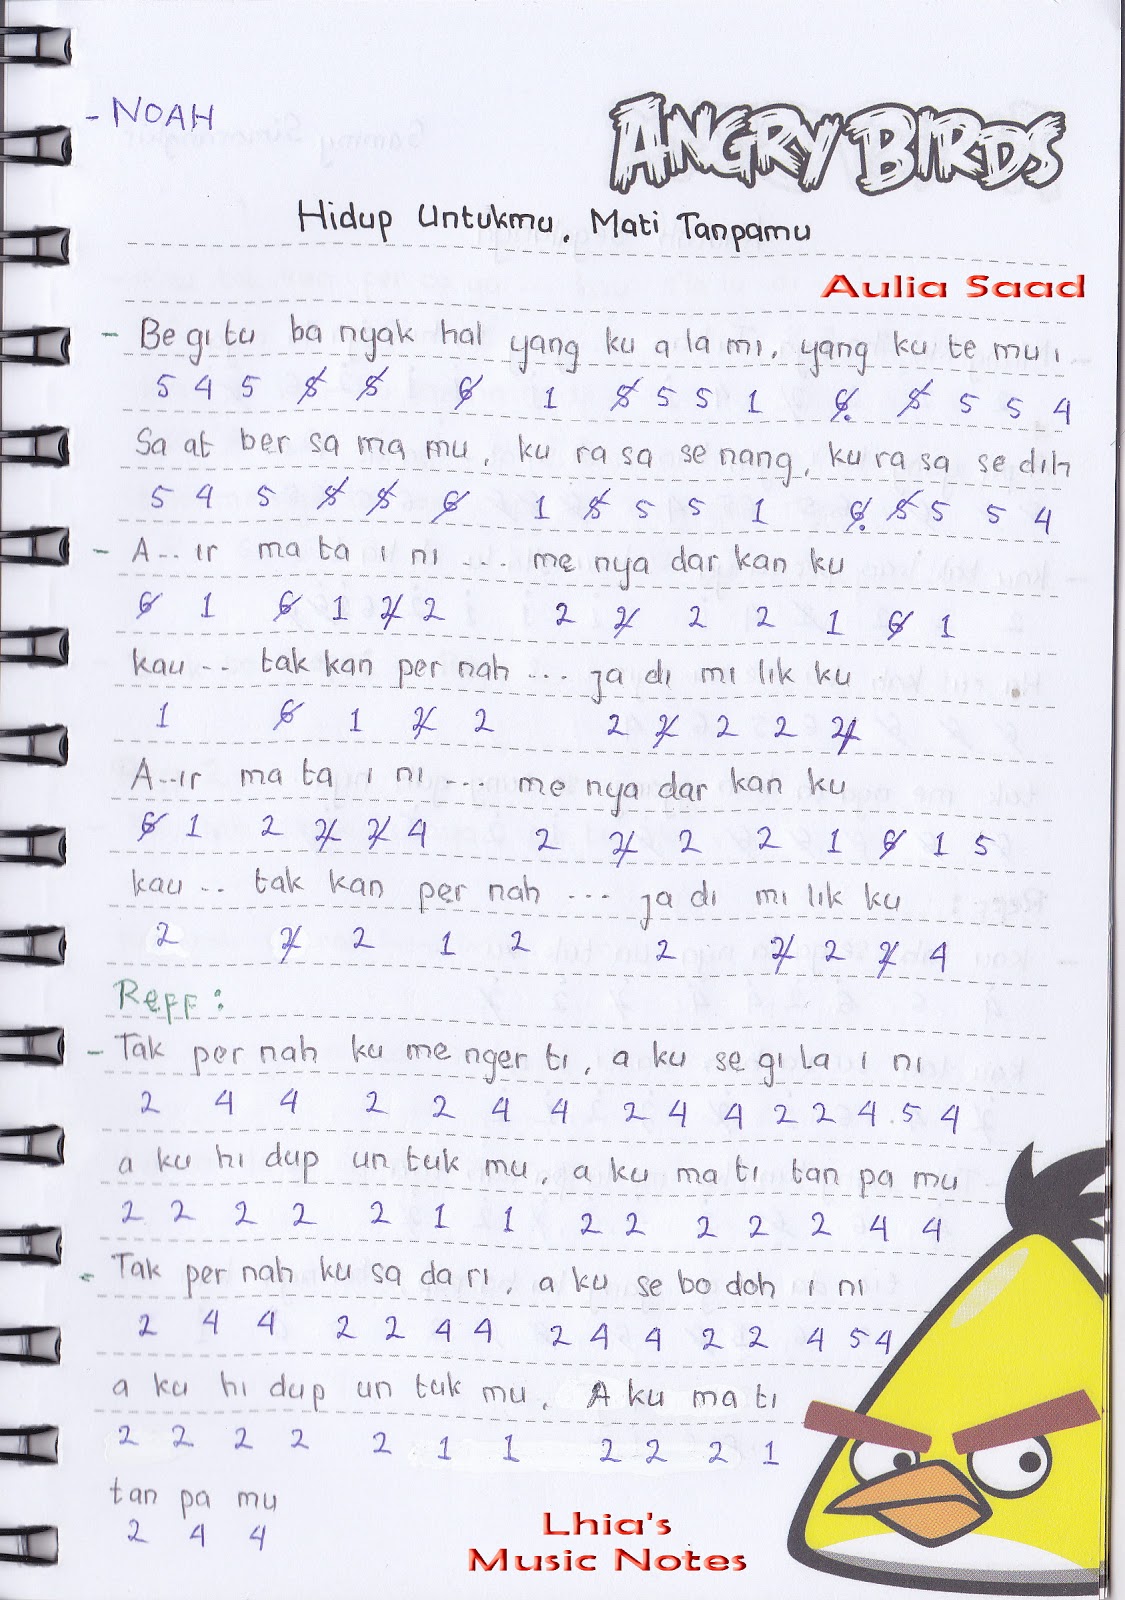 - NOAH
ANGRY BIRDS
Hidup Untukmu, Mati Tanpamu
Aulia Saad
- Be gi tu ba nyak hal yang ku a la mi, yang ku te mu i
5 4 5 5̸ 5̸ 6̸ 1 5̸ 5 5 1 6̸̣ 5̸ 5 5 4
Sa at ber sa ma mu, ku ra sa se nang, ku ra sa se dih
5 4 5 5̸ 5̸ 6̸ 1 5̸ 5 5 1 6̸̣ 5̸ 5 5 4
- A..ir ma ta i ni ... me nya dar kan ku
6̸ 1 6̸ 1 2̸ 2 2 2̸ 2 2 1 6̸ 1
kau .. tak kan per nah ... ja di mi lik ku
1 6̸ 1 2̸ 2 2 2̸ 2 2 2̸
A..ir ma ta i ni ... me nya dar kan ku
6̸ 1 2 2̸ 2̸ 4 2 2̸ 2 2 1 6̸ 1 5
kau .. tak kan per nah ... ja di mi lik ku
2 2̸ 2 1 2 2 2̸ 2 2̸ 4
Reff :
- Tak per nah ku me nger ti, a ku se gi la i ni
2 4 4 2 2 4 4 2 4 4 2 2 4 . 5 4
a ku hi dup un tuk mu, a ku ma ti tan pa mu
2 2 2 2 2 1 1 2 2 2 2 2 4 4
- Tak per nah ku sa da ri, a ku se bo doh i ni
2 4 4 2 2 4 4 2 4 4 2 2 4 5 4
a ku hi dup un tuk mu, A ku ma ti
2 2 2 2 2 1 1 2 2 2 1
tan pa mu
2 4 4
Lhia's
Music Notes